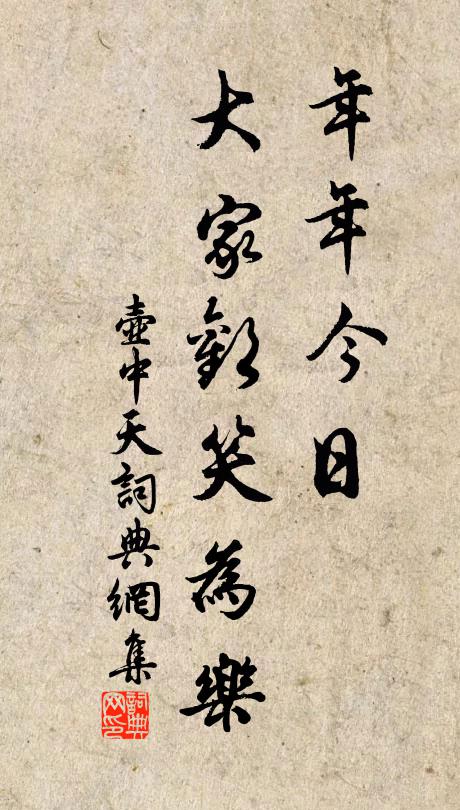 年年今日
大家歡笑為樂
壺中天詞典網集
詞典网印